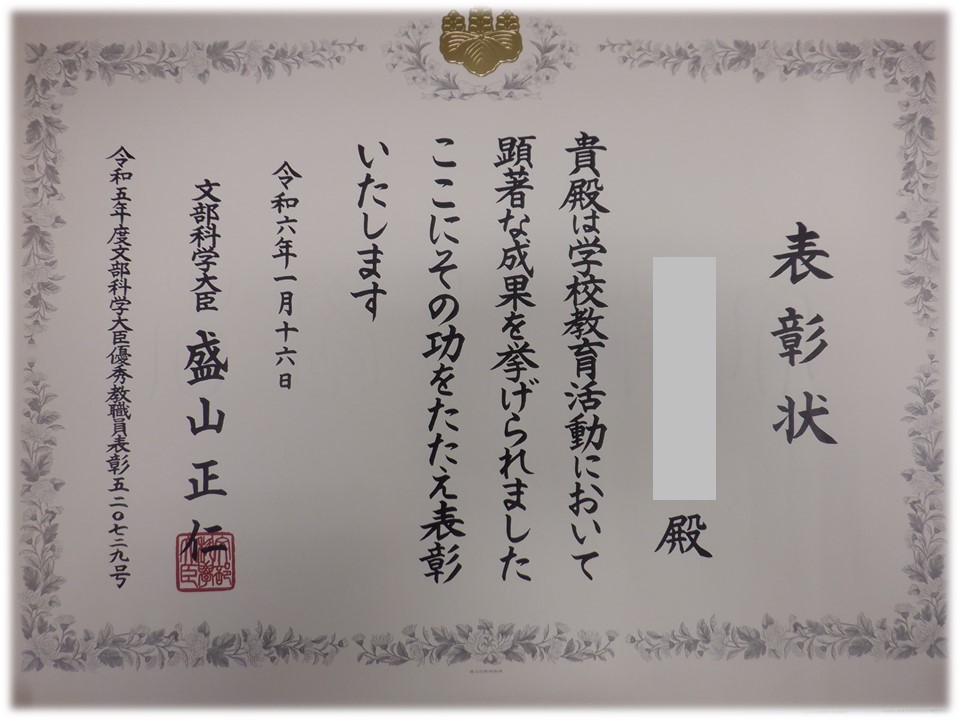 表彰状
殿
貴殿は学校教育活動において
顕著な成果を挙げられました
ここにその功をたたえ表彰
いたします
令和六年一月十六日
文部科学大臣 盛山正仁
令和五年度文部科学大臣優秀教職員表彰五二〇七二九号